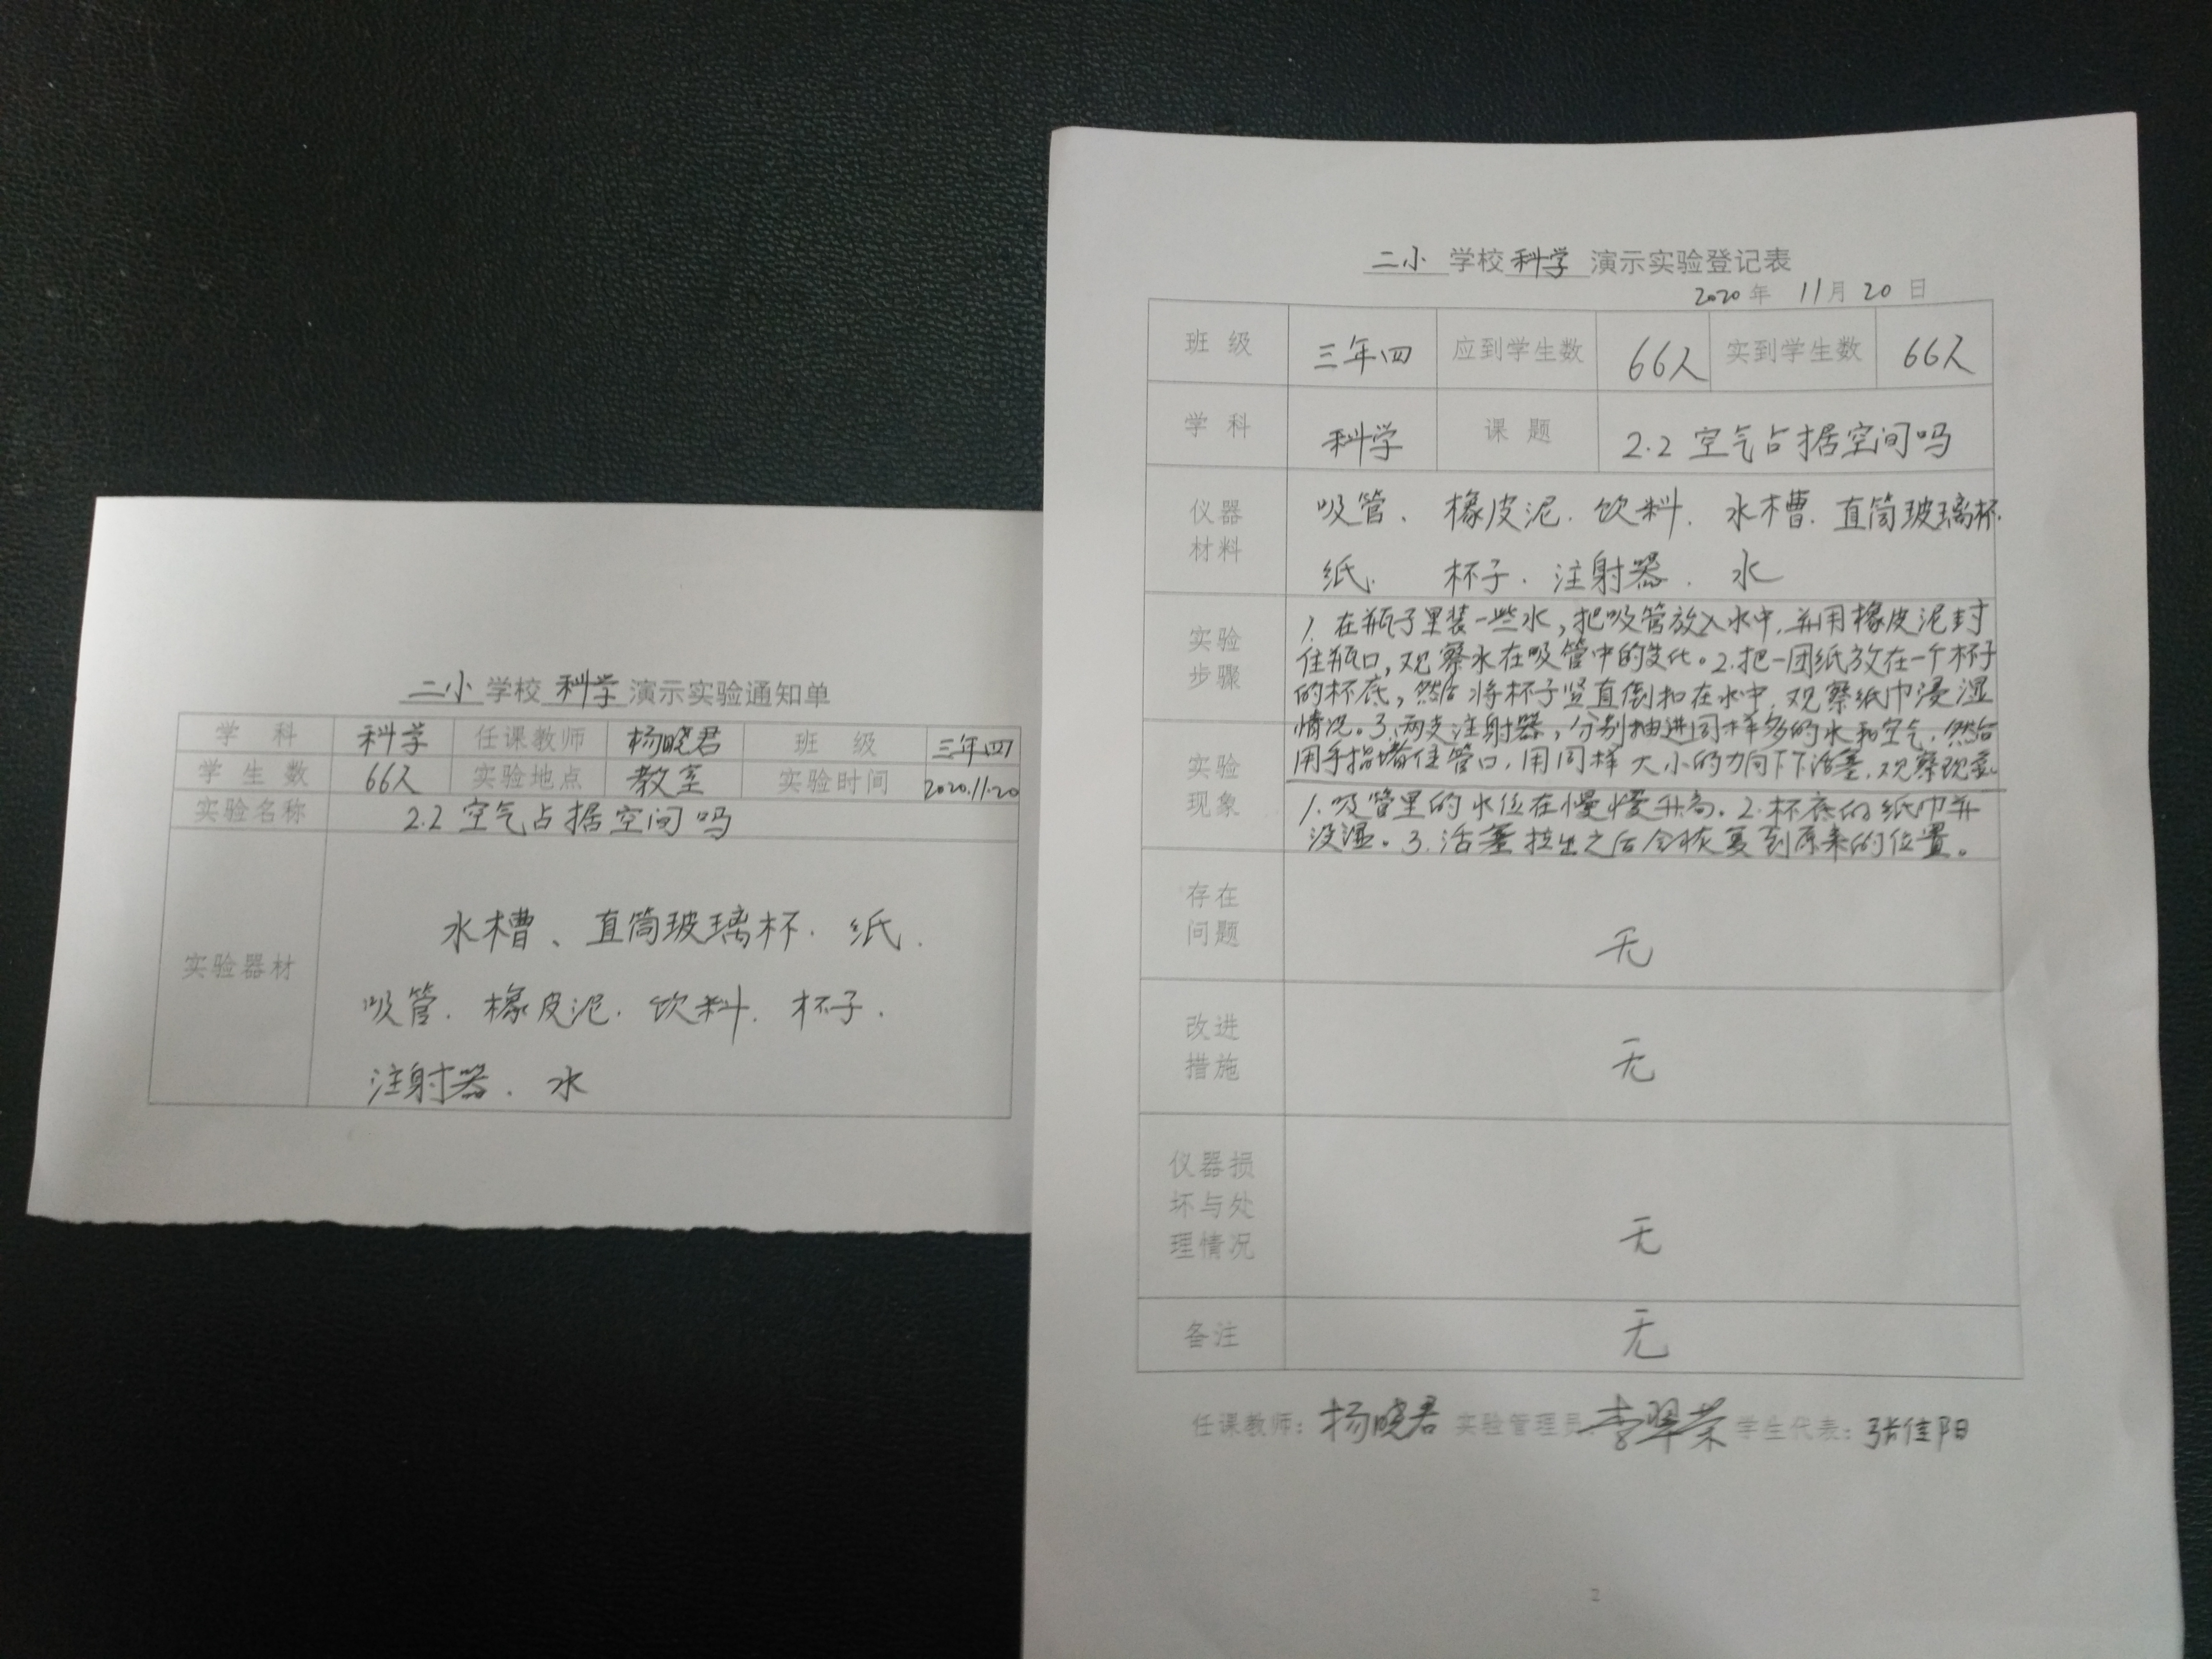 二小学校科学演示实验通知单
学 科 科学 任课教师 杨晓君 班 级 三年四
学 生 数 66人 实验地点 教室 实验时间 2020.11.20
实验名称 2.2 空气占据空间吗
实验器材
水槽、直筒玻璃杯、纸、
吸管、橡皮泥、饮料、杯子、
注射器、水
二小学校科学演示实验登记表
2020年 11月 20日
班 级 三年四 应到学生数 66人 实到学生数 66人
学 科 科学 课 题 2.2 空气占据空间吗
仪器
材料
吸管、橡皮泥、饮料、水槽、直筒玻璃杯、
纸、杯子、注射器、水
实验
步骤
1. 在瓶子里装一些水，把吸管放入水中，并用橡皮泥封
住瓶口，观察水在吸管中的变化。2.把一团纸放在一个杯子
的杯底，然后将杯子竖直倒扣在水中，观察纸巾浸湿
情况。3.两支注射器，分别抽进同样多的水和空气，然后
用手指堵住管口，用同样大小的力向下下活塞，观察现象
实验
现象
1. 吸管里的水位在慢慢升高。2.杯底的纸巾并
没湿。3.活塞拉出之后会恢复到原来的位置。
存在
问题
无
改进
措施
无
仪器损
坏与处
理情况
无
备注 无
任课教师：杨晓君 实验管理员：李翠荣 学生代表：张佳阳
2